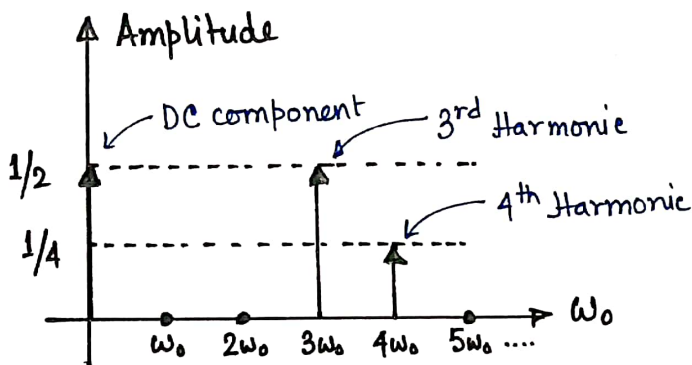 Amplitude
DC component
3rd Harmonic
1/2
4th Harmonic
1/4
ω₀
ω₀ 2ω₀ 3ω₀ 4ω₀ 5ω₀ ....